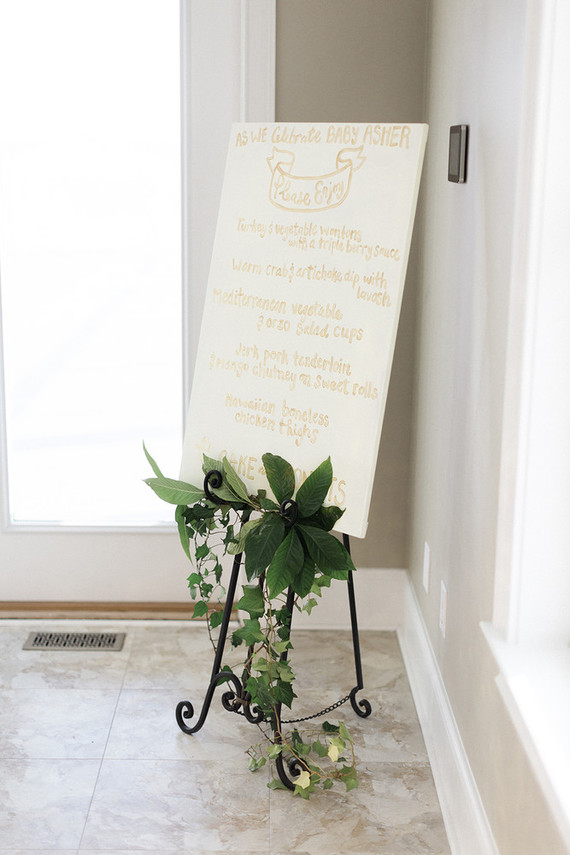 AS WE Celebrate BABY ASHER
Please Enjoy
Turkey & vegetable wontons
with a triple berry sauce
Warm crab & artichoke dip with
lavash
Mediterranean vegetable
& orzo salad cups
Jerk pork tenderloin
& mango chutney on sweet rolls
Hawaiian boneless
chicken thighs
CAKE